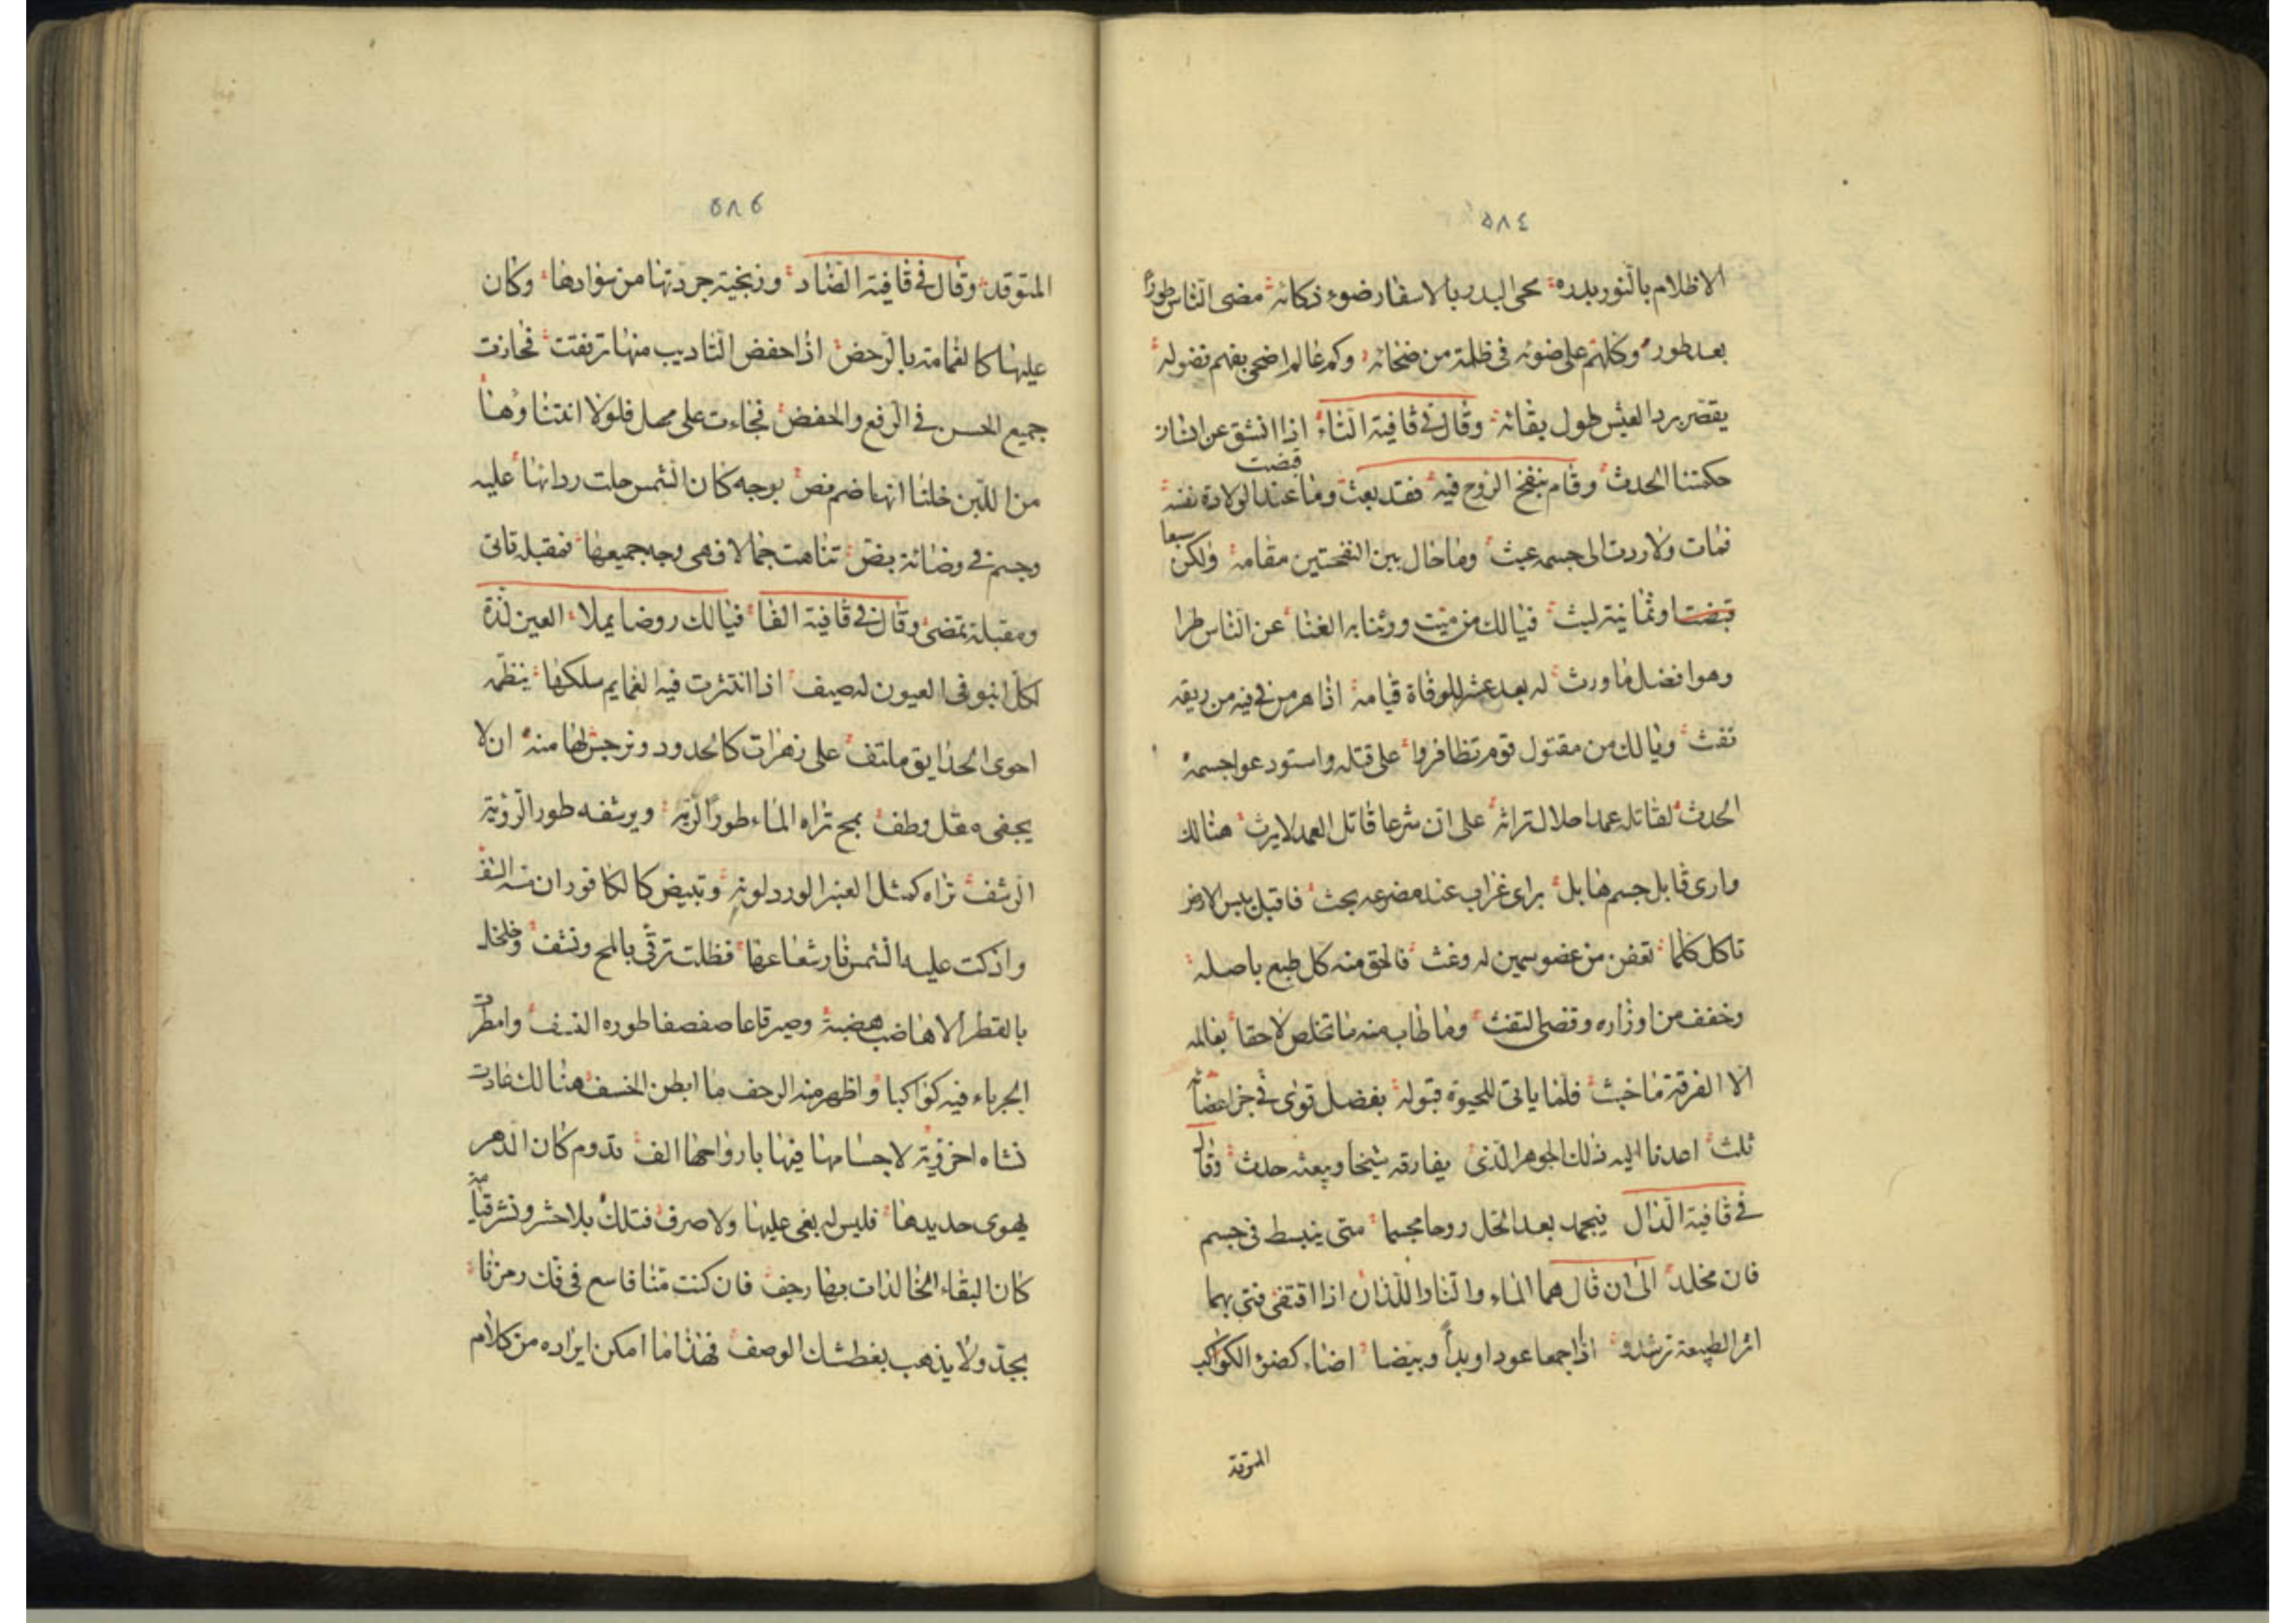 ٥٨٤
الاظلام بالنور بدره محى البدر بالاسفار ضوء ذكائه مضى الناس طورا
بعد طور وكلهم على ضوئه فى ظلمة من ضخائه وكم عالم اضحى بفهم فضوله
يقصر برد العيش طول بقائه وقال فى قافية الثاء اذا انشق عن انسان
حكمتنا الحدث وقام بنفخ الروح فيه فقد بعث وما عند الولادة نفسه
قبضت
فمات ولا ردت الى جسمه عبث وما حال بين النفختين مقامه ولكن سبعا
وثمانية لبث فيالك من ميت ورثنا به الغنا عن الناس طرا
وهو افضل ما ورث له بعد عشر للوفاة قيامة اذا هرمز فى فيه من ريقه
نفث ويالك من مقتول قوم تظافروا على قتله واستودعوا جسمه
الحدث لقاتله عمدا حلال تراثه على ان شرعا قاتل العمد لا يرث هنالك
وارى قابل جسم هابل براى غراب عند مضرعه بحث فاقبل يبس الارض
تاكل كلما تعفن من عضو سمين له وغث فالحق منه كل طبع باصله
وخفف من اوزاره وقضى التفث وما طاب منه ما تخلص لاحقا بعالمه
الا الفرقة ما خبث فلما ياتى للحيوة قبوله بفضل قوى فى جز اعضائه
ثلث اعدنا اليه ذلك الجوهر الذى يفارقه شيخا ويبعثه حدث وقال
فى قافية الذال فيجمد بعد الحل روحا مجسما متى ينبسط فى جسم
فان مخلد الى ان قال هما الماء والنار اللذان اذا اقتفى فتى بهما
اثر الطبيعة ترشد اذا جمعا عودا وبدأ وبيضا اضاء كضوء الكواكب
المتوقد
٥٨٥
المتوقد وقال فى قافية الضاد وزنجية جردتها من سوادها وكان
عليها كالغمامة بالرحض اذا حفض التاديب منها ترفعت فحازت
جميع الحسن فى الرفع والخفض فجاءت على مهل فلولا انثناؤها
من اللين خلنا انها ضم بوجه كان الشمس حلت ردائها عليه
وجسم فى وضائة بض تناهت جمالا فهى وجه جميعها فمقبلة تاتى
ومقبلة تمضى وقال فى قافية الفا فيالك روضا يملا العين لذة
لكل انبو فى العيون له صيف اذا انتثرت فيه الغمايم سلكها ينظمه
احوى الحدايق ملتف على زهرات كالخدود ونرجس لها منه ان لا
يجفى مقل وطف بمج تراه الماء طوراً لريه ويرشفه طورا لرؤية
الرشف تراه كمثل العنبر الورد لونه وتبيض كالكافور ان
واذكت عليه الشمس نار شعاعها فظلت ترقى بالمح ونشف
بالقطر الاهاضب هضبة وصير قاعا صفصفا طوره النسف وامطرت
الجرباء فيه كواكبا واظهر منه الرحف ما ابطن الخسف هنالك عادت
نشاه اخروية لاجسامها فيها بارواحها الف تدوم كان الدهر
يهوى حديدها فليس له بغى عليها ولا صرف فتلك بلا حشر ونشر قيامة
كان لبقاء الخالدات بها رجف فان كنت منا فاسع فى فك رمزنا
بجد ولا يذهب بغطشك الوصف فهذا ما امكن ايراده من كلام